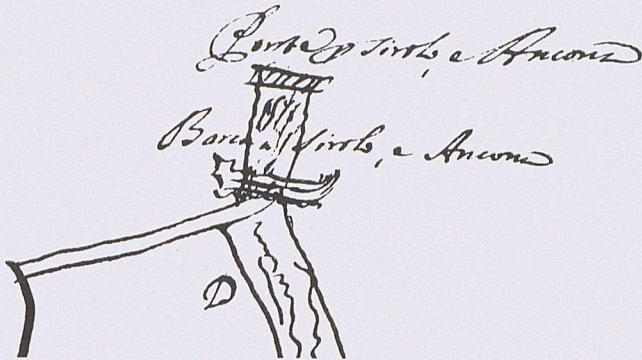 Ponte p Sirolo, e Ancona
Barca p Sirolo, e Ancona
D